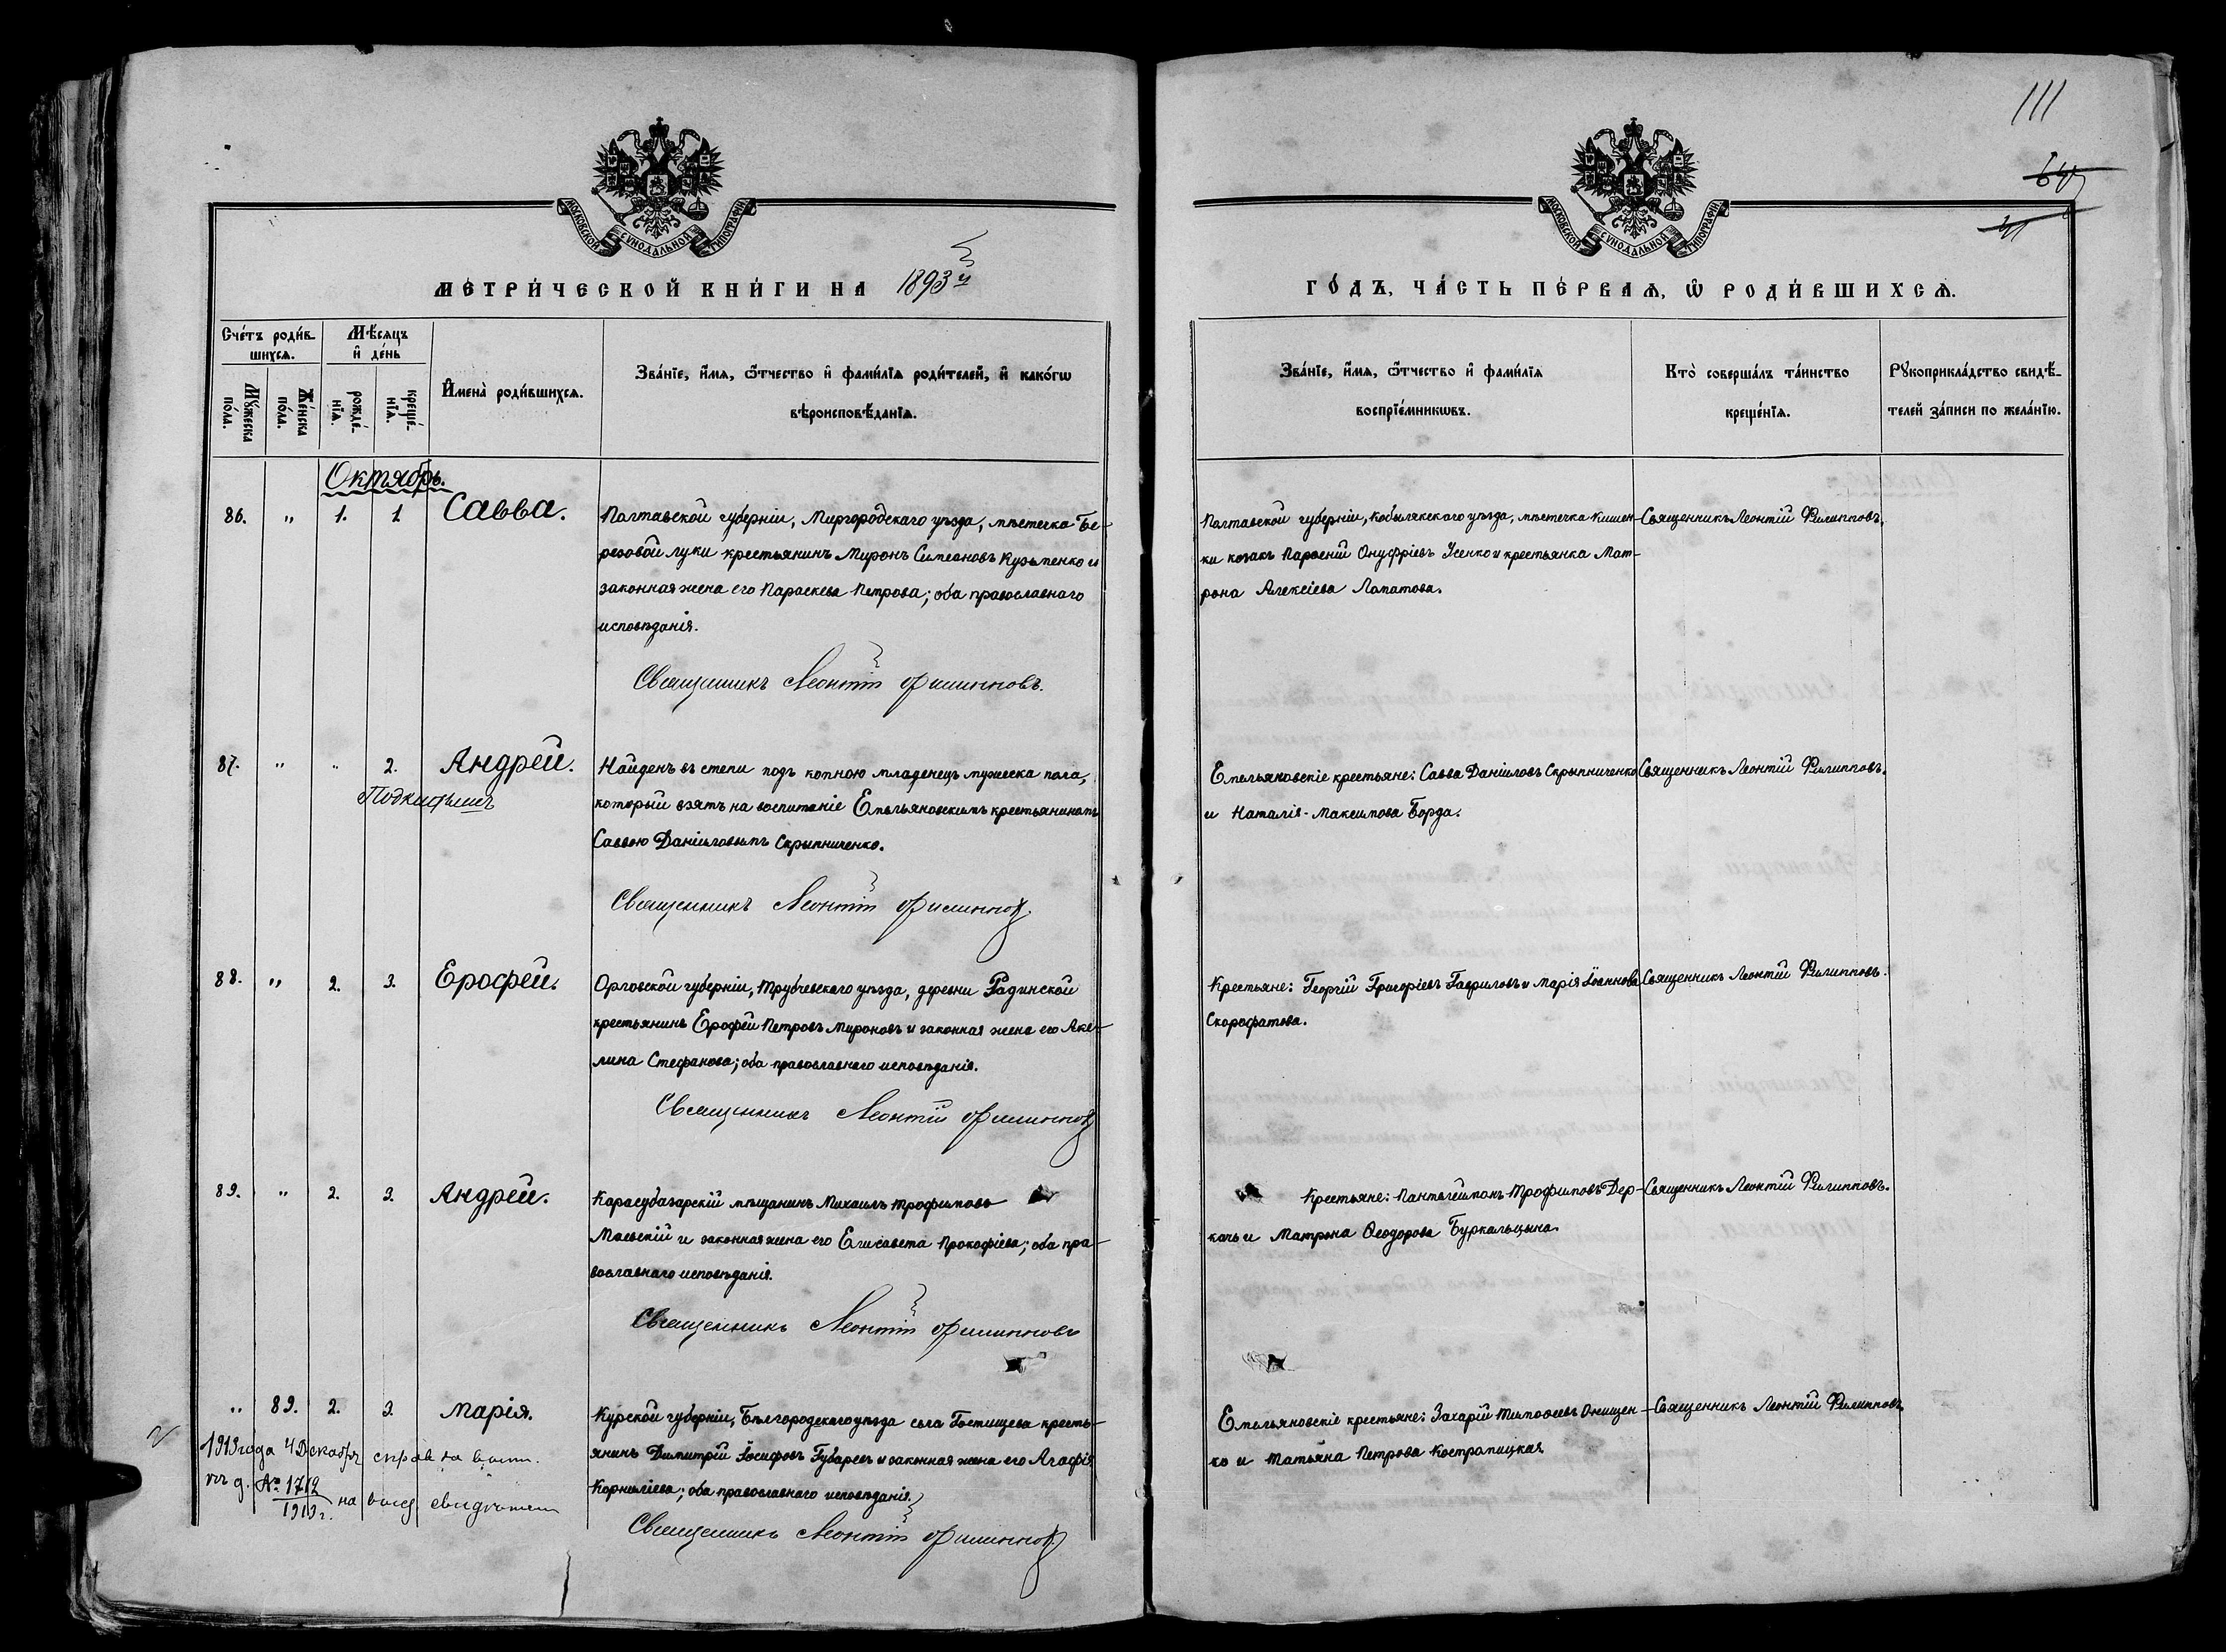 111
МОСКОВСКОЙ СУНОДАЛЬНОЙ ТИПОГРАФІИ
МОСКОВСКОЙ СУНОДАЛЬНОЙ ТИПОГРАФІИ
МЕТРИ́ЧЕСКОЙ КНИ́ГИ НА 1893й
ГО́ДЪ, ЧА́СТЬ ПЕ́РВАѦ, Ѡ҆ РОДИ́ВШИХСѦ.
Сче́тъ роди́в-
шихсѧ.
Мꙋ́жеска по́ла.
Же́нска по́ла.
Мѣ́сѧцъ
и҆ де́нь
рожде́-
нїѧ.
креще́-
нїѧ.
И҆мена̀ роди́вшихсѧ.
Зва́нїе, и҆́мѧ, ѻ҆́тчество и҆ фами́лїѧ роди́телей, и҆ како́гѡ
вѣроисповѣ́данїѧ.
Зва́нїе, и҆́мѧ, ѻ҆́тчество и҆ фами́лїѧ
воспрїе́мникѡвъ.
Кто̀ соверша́лъ та́инство
креще́нїѧ.
Рꙋкоприкла́дство свидѣ́-
телей за́писи по жела́нїю.
Октябрь.
86. " 1. 1. Савва.
Полтавской губерніи, Миргородскаго уѣзда, мѣстечка Бе-
резовой луки крестьянинъ Миронъ Симеоновъ Кузьменко и
законная жена его Параскева Петрова; оба православнаго
исповѣданія.
Священникъ Леонтій Филипповъ.
Полтавской губерніи, Кобылякскаго уѣзда, мѣстечка Кишен-
ки козакъ Парѳеній Онуфріевъ Усенко и крестьянка Мат-
рона Алексіева Лопатова.
Священникъ Леонтій Филипповъ.
87. " " 2. Андрей.
Подкидышъ
Найденъ въ степи подъ копною младенецъ мужеска пола,
который взятъ на воспитаніе Емельяновскимъ крестьяниномъ
Саввою Даніиловымъ Скрыпниченко.
Священникъ Леонтій Филиппов
Емельяновскіе крестьяне: Савва Даніиловъ Скрыпниченко
и Наталія Максимова Борда.
Священникъ Леонтій Филипповъ.
88. " 2. 3. Ерофей.
Орловской губерніи, Трубчевскаго уѣзда, деревни Радинской
крестьянинъ Ерофей Петровъ Мироновъ и законная жена его Аки-
лина Стефанова; оба православнаго исповѣданія.
Священникъ Леонтій Филиппов
Крестьяне: Георгій Григоріевъ Гавриловъ и Марія Іоаннова
Скорофатова.
Священникъ Леонтій Филипповъ.
89. " 2. 3. Андрей.
Карасубазарскій мѣщанинъ Михаилъ Трофимовъ
Маевскій и законная жена его Елисавета Прокофіева; оба пра-
вославнаго исповѣданія.
Священникъ Леонтій Филипповъ
Крестьяне: Пантелеимонъ Трофимовъ Дер-
качъ и Матрона Ѳеодорова Буркальцына.
Священникъ Леонтій Филипповъ.
" 89. 2. 3. Марія.
Курской губерніи, Бѣлгородскаго уѣзда села Гостищева кресть-
янинъ Димитрій Іосифовъ Губаревъ и законная жена его Агафія
Корниліева; оба православнаго исповѣданія.
Священникъ Леонтій Филиппов
Емельяновскіе крестьяне: Захарій Тимоѳеевъ Онищен-
ко и Татьяна Петрова Костропицкая.
Священникъ Леонтій Филипповъ.
1913 года 4 Декабря
№ 1712
1913 г. на